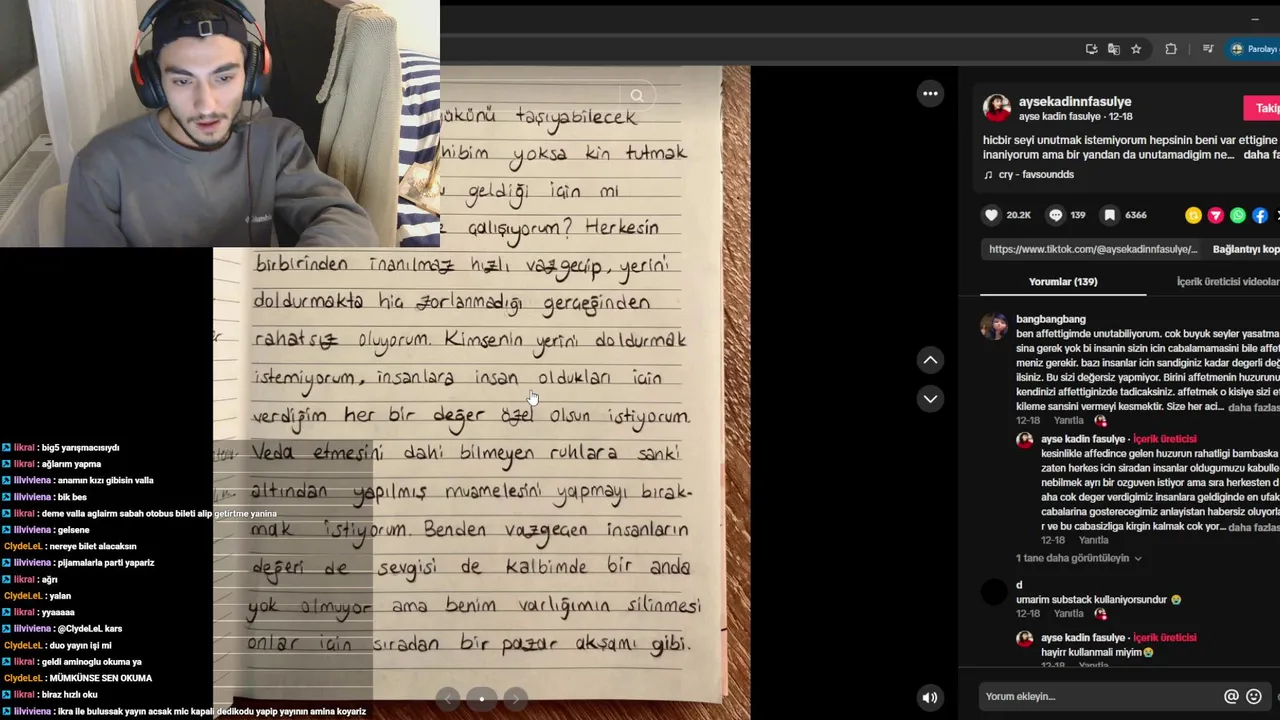 ükünü taşıyabilecek
hibim yoksa kin tutmak
geldiği için mi
çalışıyorum? Herkesin
birbirinden inanılmaz hızlı vazgeçip, yerini
doldurmakta hiç zorlanmadığı gerçeğinden
rahatsız oluyorum. Kimsenin yerini doldurmak
istemiyorum, insanlara insan oldukları için
verdiğim her bir değer özel olsun istiyorum.
Veda etmesini dahi bilmeyen ruhlara sanki
altından yapılmış muamelesini yapmayı bırak-
mak istiyorum. Benden vazgeçen insanların
değeri de sevgisi de kalbimde bir anda
yok olmuyor ama benim varlığımın silinmesi
onlar için sıradan bir pazar akşamı gibi.
likral : big5 yarışmacısıydı
likral : ağlarım yapma
lilviviena : anamın kızı gibisin valla
lilviviena : bik bes
likral : deme valla aglairm sabah otobus bileti alip getirtme yanina
lilviviena : gelsene
ClydeLeL : nereye bilet alacaksın
lilviviena : pijamalarla parti yapariz
likral : ağrı
ClydeLeL : yalan
likral : yyaaaaa
lilviviena : @ClydeLeL kars
ClydeLeL : duo yayın işi mi
likral : geldi aminoglu okuma ya
ClydeLeL : MÜMKÜNSE SEN OKUMA
likral : biraz hızlı oku
lilviviena : ikra ile bulussak yayın acsak mic kapali dedikodu yapip yayının amina koyariz
Columbia
Parolayı
aysekadinnfasulye
ayse kadin fasulye · 12-18
Takip
hicbir seyi unutmak istemiyorum hepsinin beni var ettigine
inaniyorum ama bir yandan da unutamadigim ne... daha fa
cry - favsoundds
20.2K
139
6366
https://www.tiktok.com/@aysekadinnfasulye/...
Bağlantıyı kop
Yorumlar (139)
İçerik üreticisi videolar
bangbangbang
ben affettigimde unutabiliyorum. cok buyuk seyler yasatma
sina gerek yok bi insanin sizin icin cabalamamasini bile affet
meniz gerekir. bazı insanlar icin sandiginiz kadar degerli deği
ilsiniz. Bu sizi değersiz yapmiyor. Birini affetmenin huzurunu
kendinizi affettiginizde tadicaksiniz. affetmek o kisiye sizi et
kileme sansini vermeyi kesmektir. Size her aci... daha fazlas
12-18 Yanıtla
ayse kadin fasulye · İçerik üreticisi
kesinlikle affedince gelen huzurun rahatligi bambaska
zaten herkes icin siradan insanlar oldugumuzu kabulle
nebilmek ayri bir ozguven istiyor ama sira herkesten d
aha cok deger verdigimiz insanlara geldiginde en ufak
cabalarina gosterecegimiz anlayistan habersiz oluyorla
r ve bu cabasizliga kirgin kalmak cok yor... daha fazlas
12-18 Yanıtla
1 tane daha görüntüleyin
d
umarim substack kullaniyorsundur 😭
12-18 Yanıtla
ayse kadin fasulye · İçerik üreticisi
hayirr kullanmali miyim😭
12-18 Yanıtla
Yorum ekleyin...